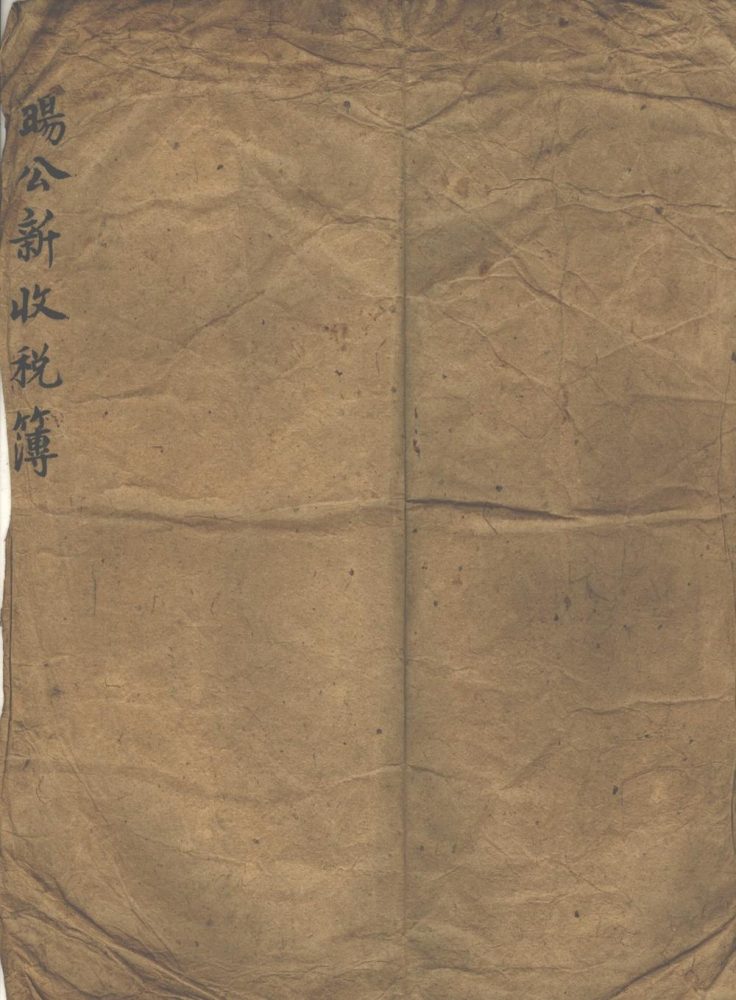 暘公新收税簿